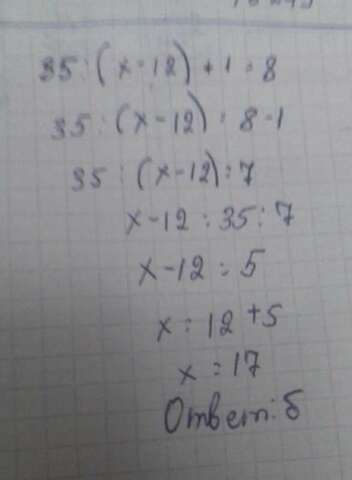 35 : (x - 12) + 1 = 8
35 : (x - 12) = 8 - 1
35 : (x - 12) = 7
x - 12 = 35 : 7
x - 12 = 5
x = 12 + 5
x = 17
Ответ: 5